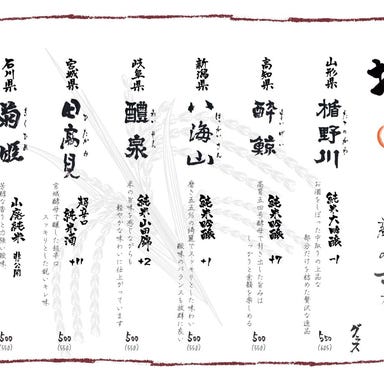 山形県
楯野川
たてのかわ
純米大吟醸 -1
お酒をしぼった中取りの上品な
部分だけを詰めた贅沢な逸品
グラス
550
(605)
高知県
酔鯨
すいげい
純米吟醸 +7
高育五四号酵母で引き出した旨みは
しっかりと余韻を楽しめる
500
(550)
新潟県
八海山
はっかいさん
純米吟醸 +1
磨き五五%の綺麗でスッキリとした味わい
酸味のバランスも抜群に良い
500
(550)
岐阜県
醴泉
れいせん
純米山田錦 +2
米の旨味を感じながらも
軽やかな味わいに仕上がっています
500
(550)
宮城県
日高見
ひたかみ
超辛口
純米酒 +11
宮城酵母で醸した超辛口は
スッキリとした鋭いキレ味
500
(550)
石川県
菊姫
きくひめ
山廃純米 非公開
500
(550)